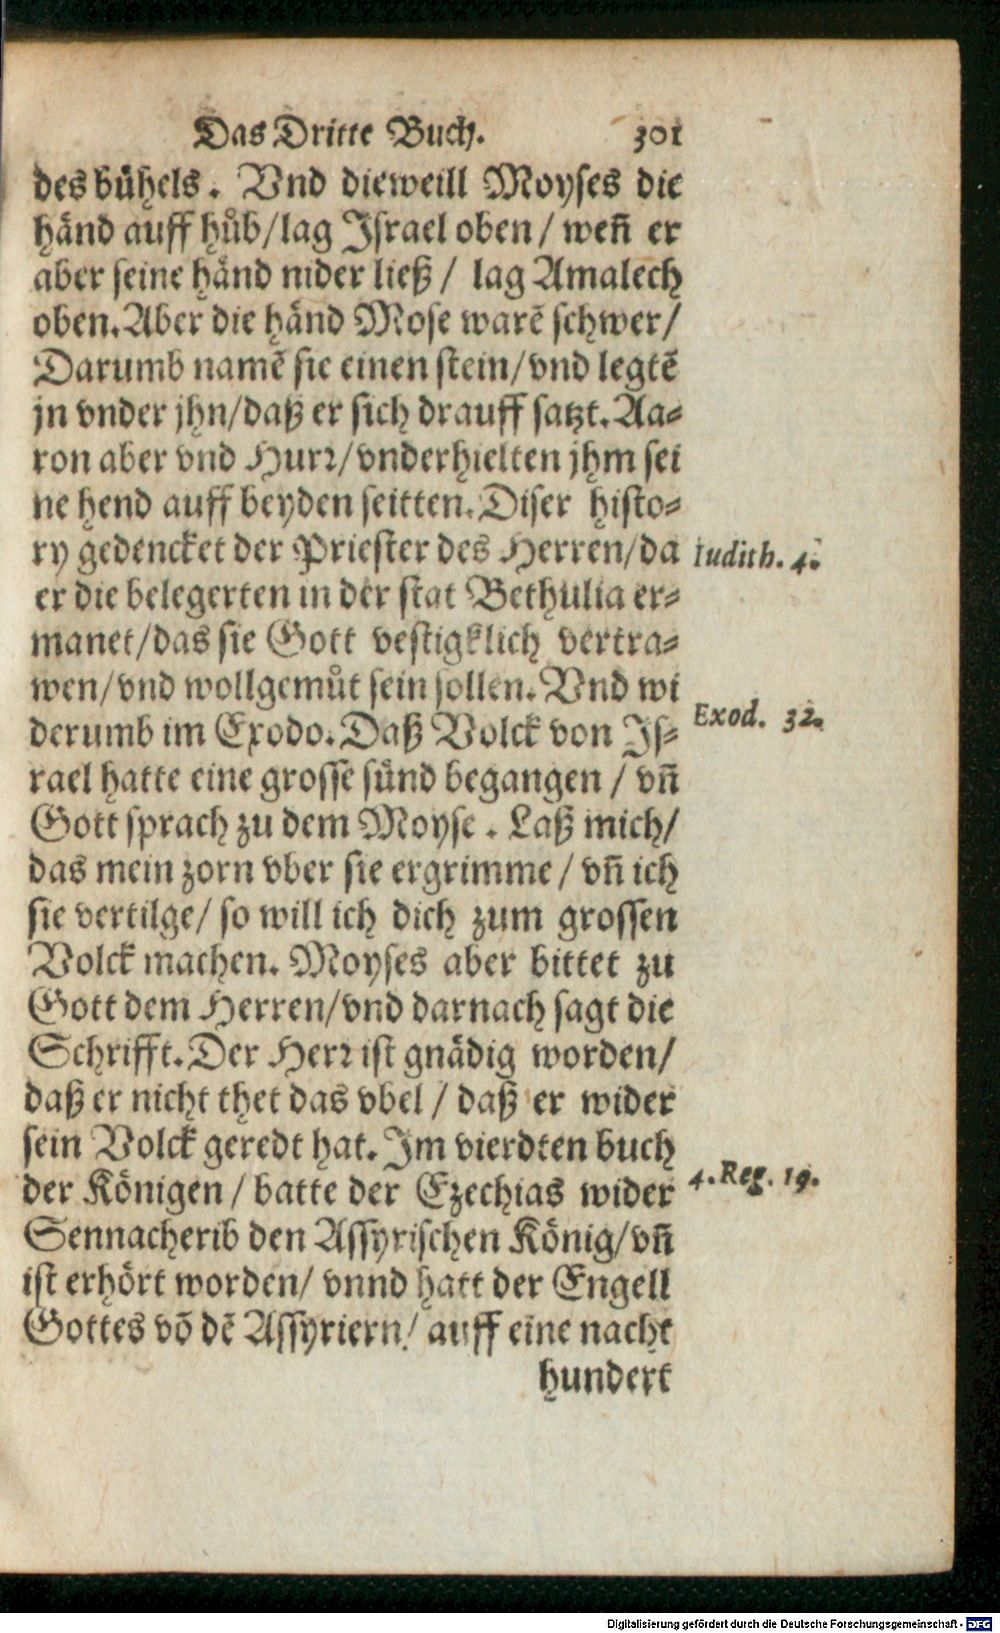 Das Dritte Buch. 301
des bühels. Vnd dieweill Moyses die
händ auff hůb/lag Israel oben/ weñ er
aber seine händ nider ließ/ lag Amalech
oben. Aber die händ Mose warẽ schwer/
Darumb namẽ sie einen stein/vnd legtẽ
jn vnder jhn/daß er sich drauff satzt. Aa-
ron aber vnd Hurr/vnderhielten jhm sei
ne hend auff beyden seitten. Diser histo-
ry gedencket der Priester des Herren/da
Iudith. 4.
er die belegerten in der stat Bethulia er-
manet/das sie Gott vestigklich vertra-
wen/vnd wollgemůt sein sollen. Vnd wi
derumb im Exodo. Daß Volck von Is-
Exod. 32.
rael hatte eine grosse sünd begangen/ vñ
Gott sprach zu dem Moyse. Laß mich/
das mein zorn vber sie ergrimme/ vñ ich
sie vertilge/ so will ich dich zum grossen
Volck machen. Moyses aber bittet zu
Gott dem Herren/vnd darnach sagt die
Schrifft. Der Herr ist gnädig worden/
daß er nicht thet das vbel/ daß er wider
sein Volck geredt hat. Im vierdten buch
der Königen/ batte der Ezechias wider
4. Reg. 19.
Sennacherib den Assyrischen König/vñ
ist erhört worden/ vnnd hatt der Engell
Gottes võ dẽ Assyriern/ auff eine nacht
hundert
Digitalisierung gefördert durch die Deutsche Forschungsgemeinschaft - DFG